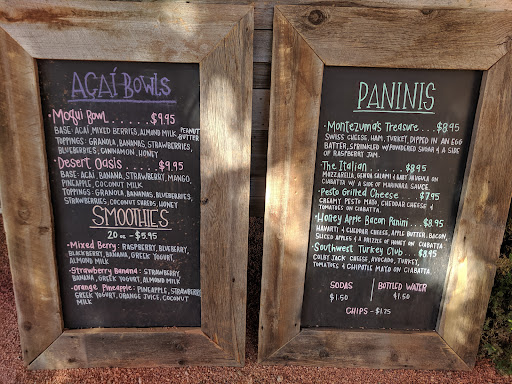 AÇAÍ BOWLS
• Moqui Bowl . . . . . . $9.95
BASE: AÇAÍ, MIXED BERRIES, ALMOND MILK, PEANUT BUTTER
TOPPINGS: GRANOLA, BANANAS, STRAWBERRIES,
BLUEBERRIES, CINNAMON, HONEY
• Desert Oasis . . . . . $9.95
BASE: AÇAÍ, BANANA, STRAWBERRY, MANGO,
PINEAPPLE, COCONUT MILK
TOPPINGS: GRANOLA, BANANAS, BLUEBERRIES,
STRAWBERRIES, COCONUT SHREDS, HONEY
SMOOTHIES
20 oz - $5.95
• Mixed Berry: RASPBERRY, BLUEBERRY,
BLACKBERRY, BANANA, GREEK YOGURT,
ALMOND MILK
• Strawberry Banana: STRAWBERRY,
BANANA, GREEK YOGURT, ALMOND MILK
• orange Pineapple: PINEAPPLE, STRAWBERRY
GREEK YOGURT, ORANGE JUICE, COCONUT
MILK
PANINIS
• Montezuma's Treasure . . . $8.95
SWISS CHEESE, HAM, TURKEY, DIPPED IN AN EGG
BATTER, SPRINKLED W/ POWDERED SUGAR & A SIDE
OF RASPBERRY JAM.
• The Italian . . . . . . $8.95
MOZZARELLA, GENOA SALAMI & CAPICOLA ON
CIABATTA W/ A SIDE OF MARINARA SAUCE.
• Pesto Grilled Cheese . . . $7.95
CREAMY PESTO MAYO, CHEDDAR CHEESE &
TOMATOES ON CIABATTA.
• Honey Apple Bacon Panini . . . $8.95
HAVARTI & CHEDDAR CHEESE, APPLE BUTTER, BACON,
SLICED APPLES & A DRIZZLE OF HONEY ON CIABATTA.
• Southwest Turkey Club . . . $8.95
COLBY JACK CHEESE, AVOCADO, TURKEY,
TOMATOES & CHIPOTLE MAYO ON CIABATTA.
SODAS
$1.50
BOTTLED WATER
$1.50
CHIPS - $1.75